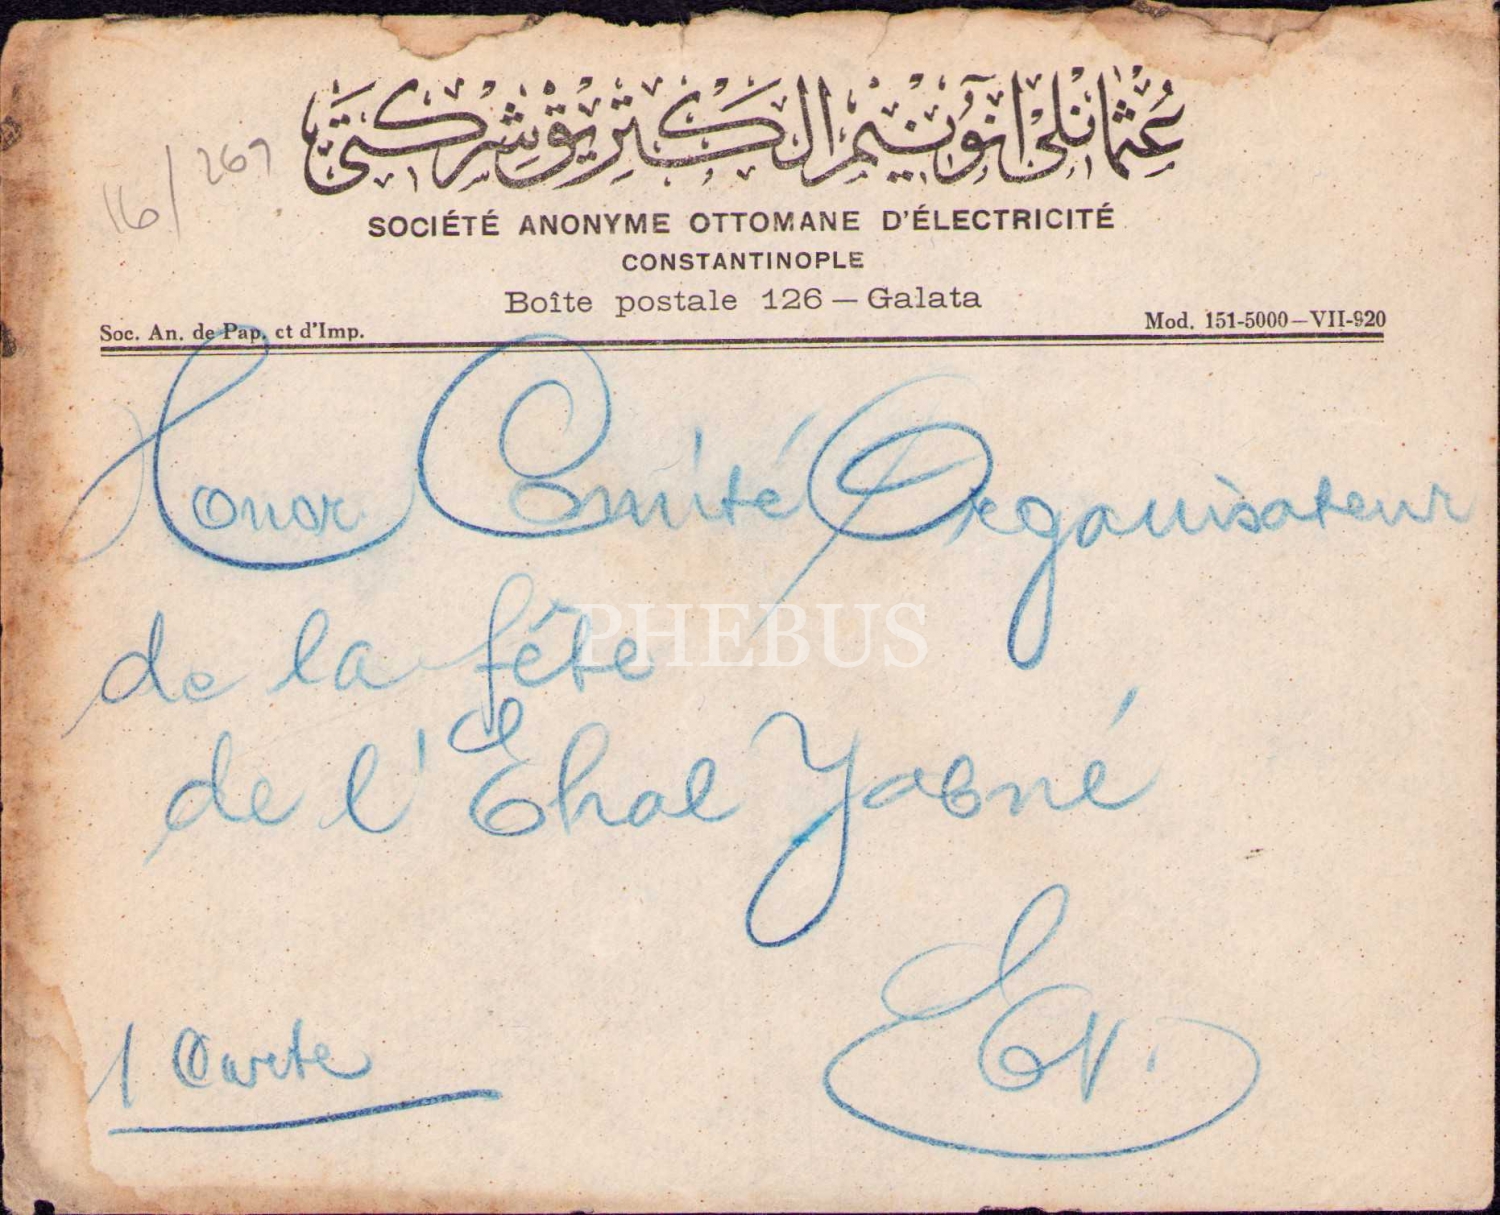 عثمانلی آنونیم الكتریق شركتی
16/267
SOCIÉTÉ ANONYME OTTOMANE D'ÉLECTRICITÉ
CONSTANTINOPLE
Boîte postale 126 — Galata
Soc. An. de Pap. et d'Imp.
Mod. 151-5000—VII-920
Honor Comité Organisateur
de la fête
PHEBUS
de l'Ehal Yabné
1 Carte
EV.